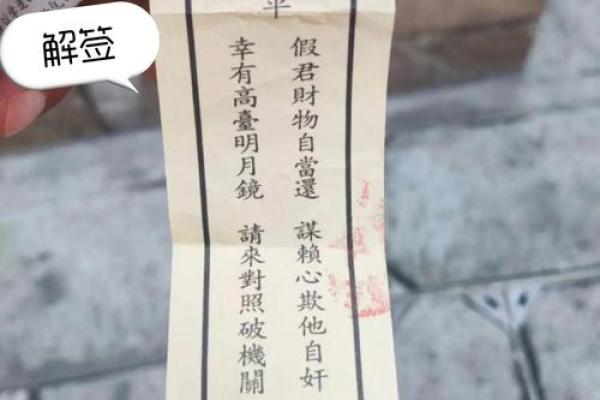 解签
假君財物自當還 謀賴心欺他自奸
幸有高臺明月鏡 請來對照破機關